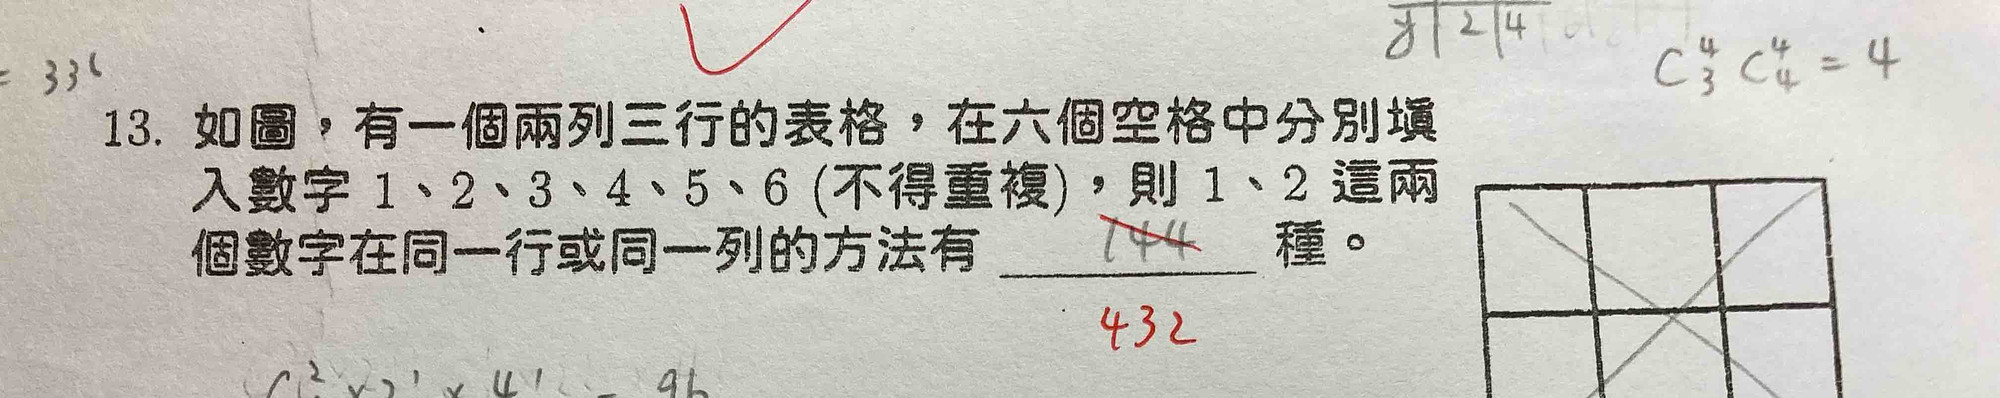 y 2 4
C⁴₃ C⁴₄ = 4
= 33⁶
13. 如圖,有一個兩列三行的表格,在六個空格中分別填
入數字 1、2、3、4、5、6 (不得重複),則 1、2 這兩
個數字在同一行或同一列的方法有 144 種。
432
× 4! = 96